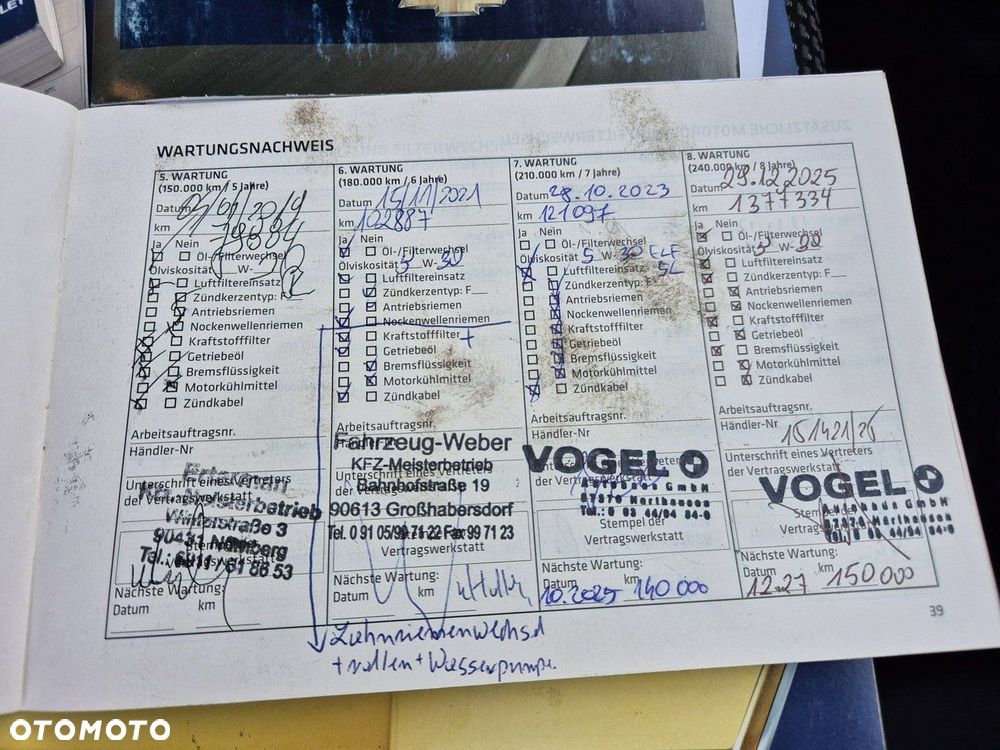 LET
WARTUNGSNACHWEIS
5. WARTUNG
(150.000 km / 5 Jahre)
Datum
km 79884
Ja Nein
Öl-/Filterwechsel
Ölviskosität W-
Luftfiltereinsatz
Zündkerzentyp: F
Antriebsriemen
Nockenwellenriemen
Kraftstofffilter
Getriebeöl
Bremsflüssigkeit
Motorkühlmittel
Zündkabel
Arbeitsauftragsnr.
Händler-Nr
Unterschrift eines Vertreters
der Vertragswerkstatt
Kfz-Meisterbetrieb
Winterstraße 3
90431 Nürnberg
Nächste Wartung:
Datum km
6. WARTUNG
(180.000 km / 6 Jahre)
Datum 15/11/2021
km 102887
Ja Nein
Öl-/Filterwechsel
Ölviskosität 5 W-30
Luftfiltereinsatz
Zündkerzentyp: F
Antriebsriemen
Nockenwellenriemen
Kraftstofffilter +
Getriebeöl
Bremsflüssigkeit
Motorkühlmittel
Zündkabel
Fahrzeug-Weber
Händler-Nr
KFZ-Meisterbetrieb
Unterschrift eines Vertreters
Bahnhofstraße 19
der Vertragswerkstatt
90613 Großhabersdorf
Tel. 0 91 05/99 71-22 Fax 99 71 23
Vertragswerkstatt
Nächste Wartung:
Datum km
Zahnriemenwechsel
+ rollen + Wasserpumpe.
7. WARTUNG
(210.000 km / 7 Jahre)
Datum 28.10.2023
km 121097
Ja Nein
Öl-/Filterwechsel
Ölviskosität 5 W-30 ELF
Luftfiltereinsatz 5L
Zündkerzentyp: F
Antriebsriemen
Nockenwellenriemen
Kraftstofffilter
Getriebeöl
Bremsflüssigkeit
Motorkühlmittel
Zündkabel
Arbeitsauftragsnr.
Händler-Nr
VOGEL
Unterschrift eines Vertreters
Autohaus GmbH
der Vertragswerkstatt
Stempel der
Vertragswerkstatt
Nächste Wartung:
Datum km
10.2025 140 000
8. WARTUNG
(240.000 km / 8 Jahre)
Datum 29.12.2025
km 1377334
Ja Nein
Öl-/Filterwechsel
Ölviskosität 5 W-30
Luftfiltereinsatz
Zündkerzentyp: F
Antriebsriemen
Nockenwellenriemen
Kraftstofffilter
Getriebeöl
Bremsflüssigkeit
Motorkühlmittel
Zündkabel
Arbeitsauftragsnr.
Händler-Nr 151421/25
Unterschrift eines Vertreters
der Vertragswerkstatt
VOGEL
Autohaus GmbH
Nächste Wartung:
Datum km
12.27 150 000
39
OTOMOTO